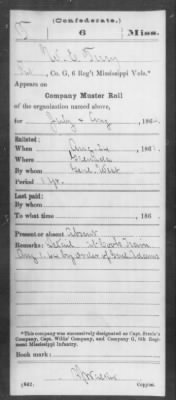 (Confederate.)
5 6 Miss.
W. C.
Pvt, Co. G, 6 Reg't Mississippi Vols.*
Appears on
Company Muster Roll
of the organization named above,
for July & Aug, 186
Enlisted:
When Aug
Where
By whom Genl West
Period 1 yr.
Last paid:
By whom
To what time , 186 .
Present or absent Absent
Remarks: Detail
Aug 1, by order of Genl Adams
*This company was successively designated as Capt. Steele's
Company, Capt. Willis' Company, and Company G, 6th Regiment
Mississippi Infantry.
Book mark:
(642)
Copyist.